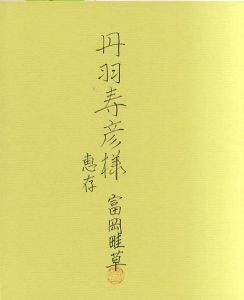 丹羽寿彦様
恵存
富岡畦草